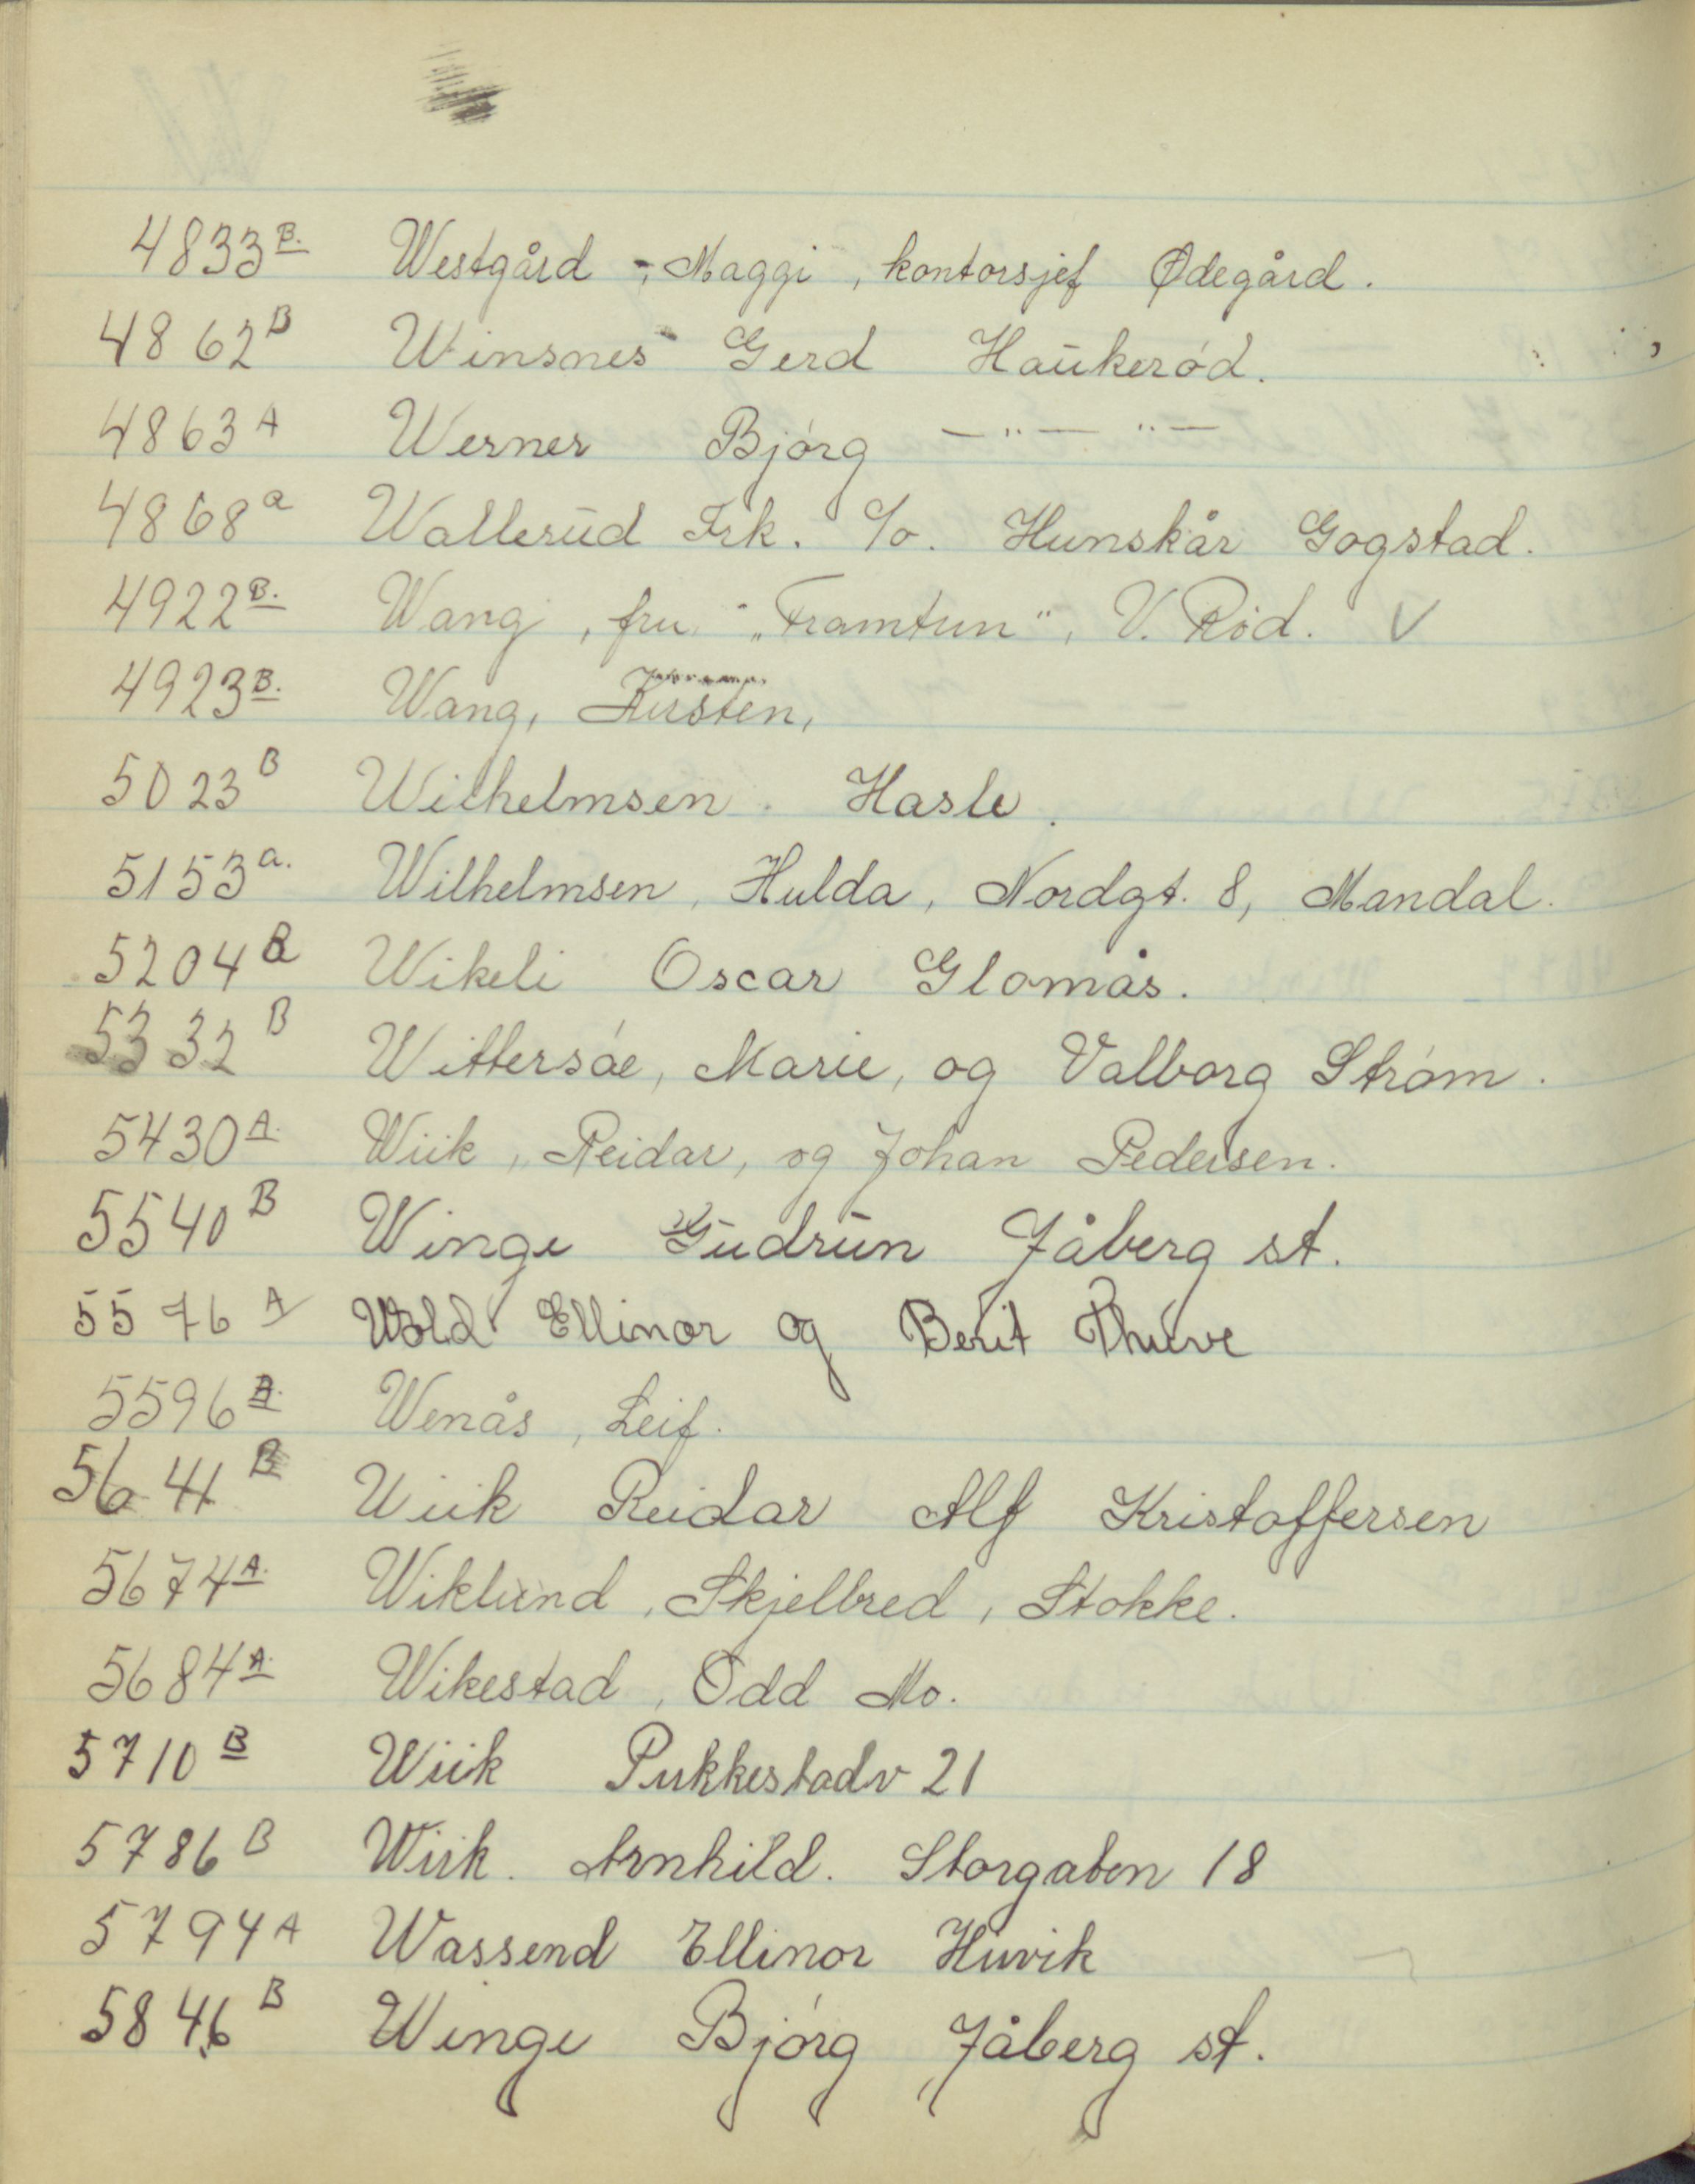 4833 B. Westgård, Maggi, kontorsjef Ødegård.
4862 B Winsnes Gerd Haukerød.
4863 A Werner Bjørg —"— "—
4868 a Wallerud Frk. c/o. Hunskår Gogstad.
4922 B. Wang, fru „Framtun", V. Rød. V
4923 B. Wang, Kirsten,
5023 B Wilhelmsen. Hasle.
5153 a. Wilhelmsen, Hulda, Nordgt. 8, Mandal.
5204 Wikeli Oscar Glomås.
5332 B Wittersøe, Marie, og Valborg Strøm.
5430 A. Wiik, Reidar, og Johan Pedersen.
5540 B Winge Gudrun Jåberg st.
5576 A Wold Ellinor og Berit Thuve
5596 Wenås, Leif.
5641 B Wiik Reidar Alf Kristoffersen
5674 A. Wiklund, Skjelbred, Stokke.
5684 A. Wikestad, Odd Mo.
5710 B Wiik Pukkestadv 21
5786 B Wiik. Arnhild. Storgaten 18
5794 A Wassend Ellinor Huvik
5846 B Winge Bjørg Jåberg st.